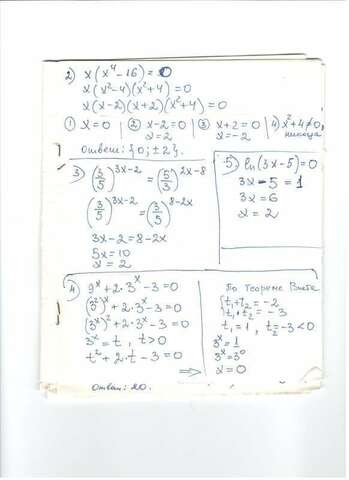 2) x(x⁴-16)=0
x(x²-4)(x²+4)=0
x(x-2)(x+2)(x²+4)=0
① x=0 | ② x-2=0 | ③ x+2=0 | 4) x²+4≠0,
x=2 x=-2 никогда
ответ: {0; ±2}.
3) (3/5)^(3x-2) = (5/3)^(2x-8)
(3/5)^(3x-2) = (3/5)^(8-2x)
3x-2=8-2x
5x=10
x=2
5) ln(3x-5)=0
3x-5=1
3x=6
x=2
4) 9ˣ+2·3ˣ-3=0
(3²)ˣ+2·3ˣ-3=0
(3ˣ)²+2·3ˣ-3=0
3ˣ=t, t>0
t²+2·t-3=0
⇒
По теореме Виета
{t₁+t₂=-2
t₁·t₂=-3
t₁=1, t₂=-3<0
3ˣ=1
3ˣ=3⁰
x=0
Ответ: